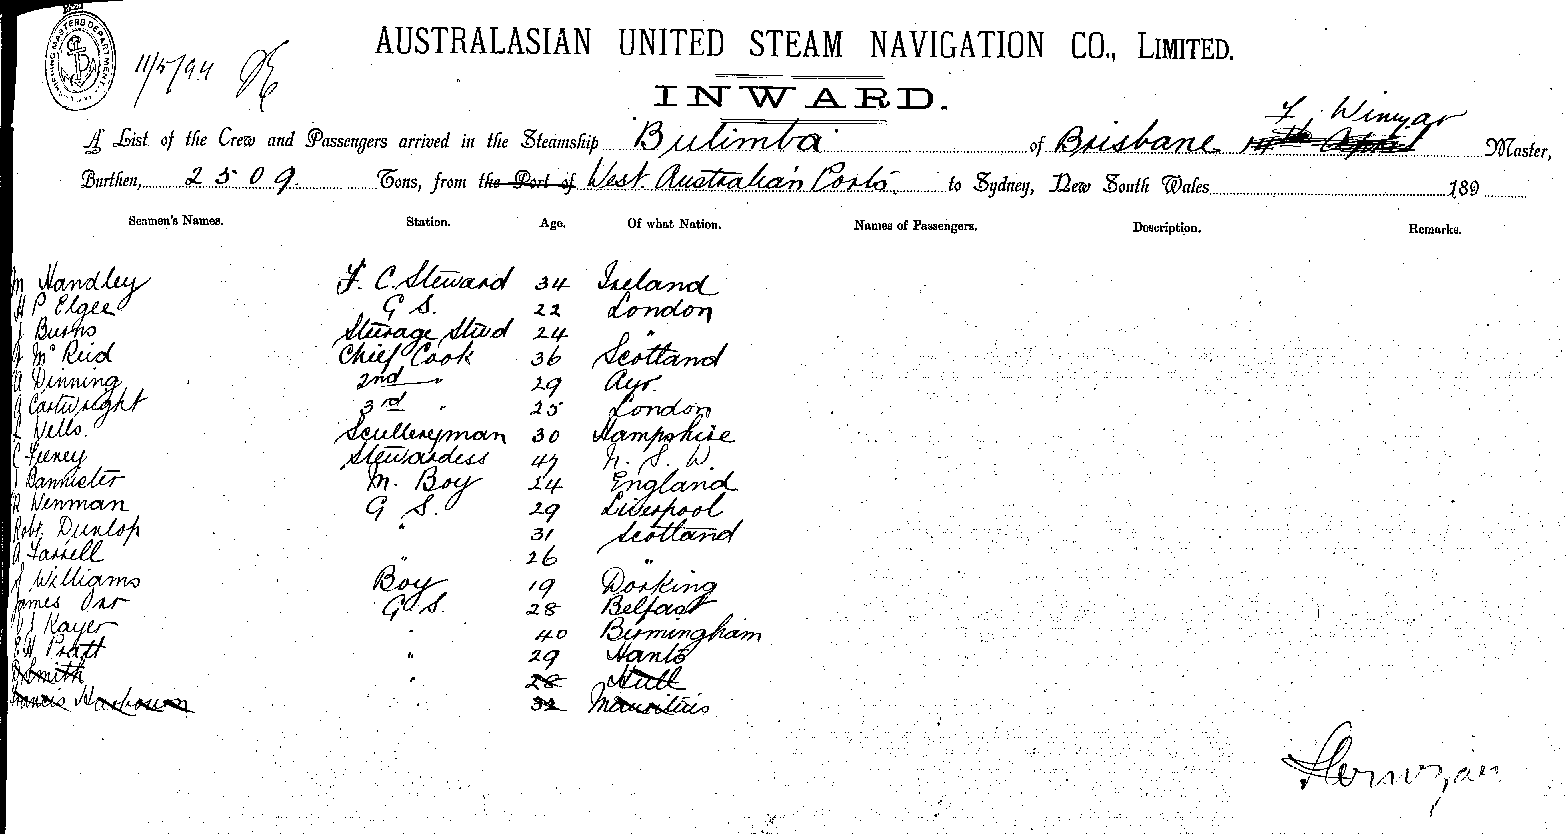 11/5/94
AUSTRALASIAN UNITED STEAM NAVIGATION CO., LIMITED.
INWARD.
F. Winyar
A List of the Crew and Passengers arrived in the Steamship Bulimba of Brisbane 14th April Master,
Burthen, 2509 Tons, from the Port of West Australian Ports to Sydney, New South Wales 189
Seamen's Names. Station. Age. Of what Nation. Names of Passengers. Description. Remarks.
M Handley F. C. Steward 34 Ireland
H P Elgee G S. 22 London
J Burns Steerage Stwd 24 "
Mc Reid Chief Cook 36 Scotland
Dinning 2nd " 29 Ayr.
Cartwright 3rd " 25 London
Wells. Sculleryman 30 Hampshire
C Feeney Stewardess 47 N. S. W.
Bannister M. Boy 24 England
R Wenman G S. 29 Liverpool
Robt Dunlop " 31 Scotland
Farrell " 26 "
Williams Boy 19 Dorking
James Orr G S. 28 Belfast
Kayer " 40 Birmingham
E H Pratt " 29 Hants
Smith " 28 Hull
Francis " 32 Mauritius